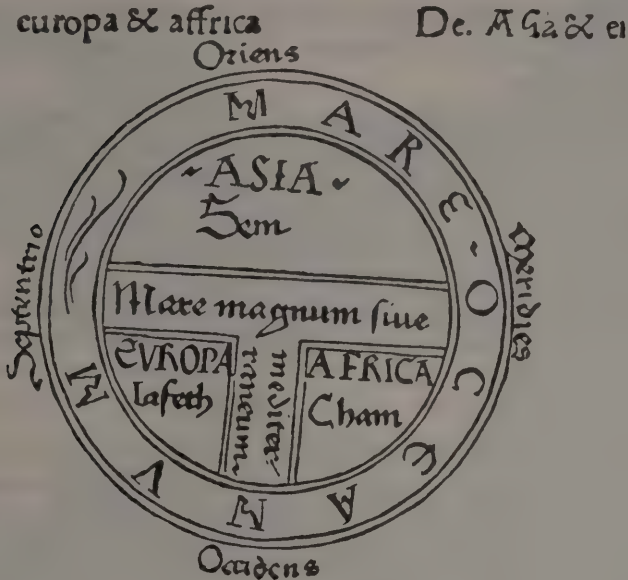 europa & affrica
De. ASia & ei
Oriens
MARE-OCEANVM
ASIA
Sem
Septentrio
Meridies
Mare magnum ſiue
mediter:
raneum
EVROPA
Iafeth
AFRICA
Cham
Occidens